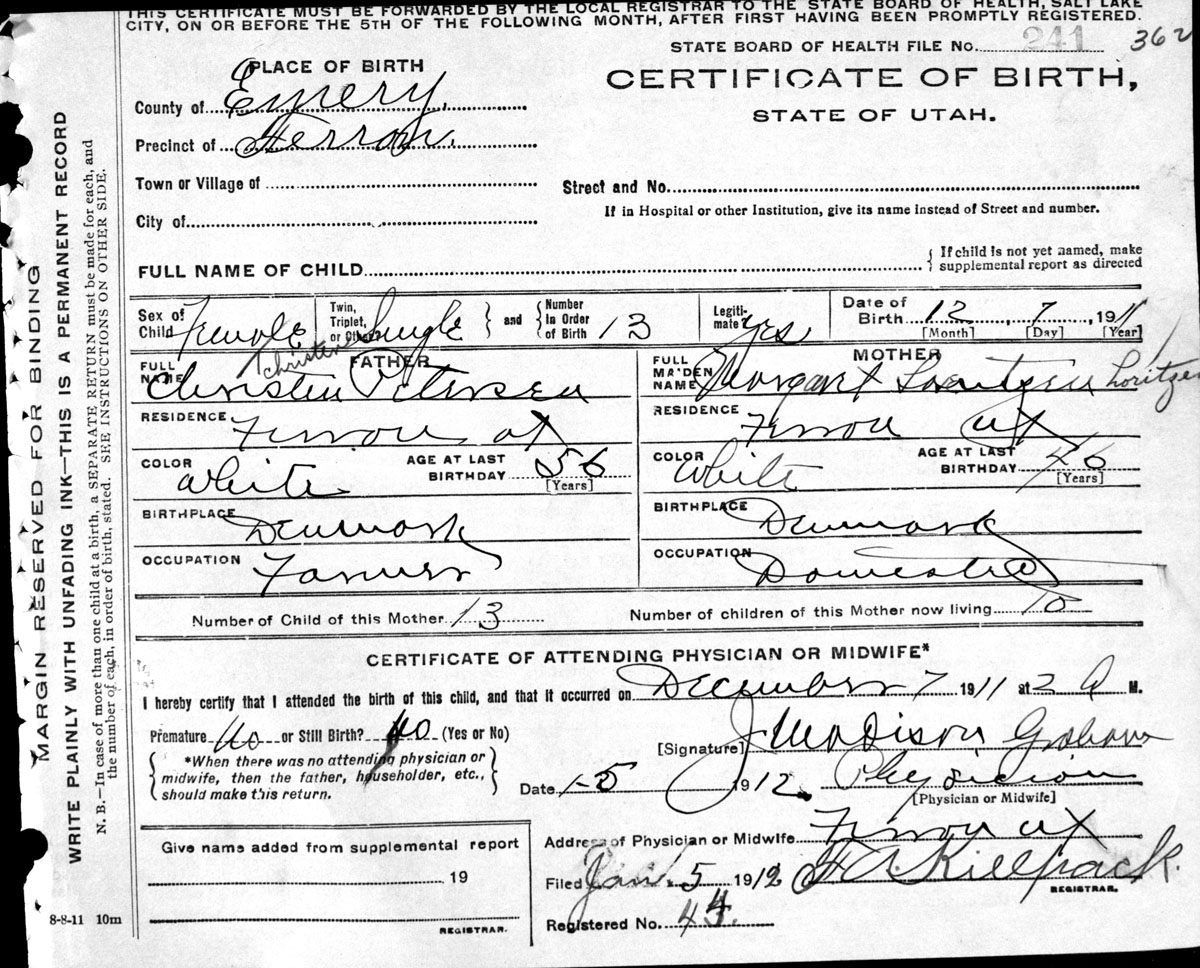 THIS CERTIFICATE MUST BE FORWARDED BY THE LOCAL REGISTRAR TO THE STATE BOARD OF HEALTH, SALT LAKE
CITY, ON OR BEFORE THE 5TH OF THE FOLLOWING MONTH, AFTER FIRST HAVING BEEN PROMPTLY REGISTERED.
STATE BOARD OF HEALTH FILE No. 241 362
PLACE OF BIRTH
CERTIFICATE OF BIRTH,
STATE OF UTAH.
County of Emery.
Precinct of Ferron.
Town or Village of
Street and No.
City of
If in Hospital or other Institution, give its name instead of Street and number.
FULL NAME OF CHILD
{ If child is not yet named, make
supplemental report as directed
Sex of Child Female
Twin, Triplet, or Other Single } and { Number In Order of Birth 13
Legiti-mate Yes
Date of Birth 12 7, 1911
[Month] [Day] [Year]
FATHER
FULL NAME Christen Petersen
Christen
MOTHER
FULL MAIDEN NAME Margaret Lorentzen Loritzen
RESIDENCE Ferron Ut
RESIDENCE Ferron Ut
COLOR White AGE AT LAST BIRTHDAY 56 [Years]
COLOR White AGE AT LAST BIRTHDAY 46 [Years]
BIRTHPLACE Denmark
BIRTHPLACE Denmark
OCCUPATION Farmer
OCCUPATION Domestic
Number of Child of this Mother 13 Number of children of this Mother now living 10
CERTIFICATE OF ATTENDING PHYSICIAN OR MIDWIFE*
I hereby certify that I attended the birth of this child, and that it occurred on December 7 1911 at 2 A M.
Premature No or Still Birth? No (Yes or No)
[Signature] J Madison Graham
{ *When there was no attending physician or
midwife, then the father, householder, etc.,
should make this return. }
Date 1-5 1912. Physician
[Physician or Midwife]
Address of Physician or Midwife Ferron Ut
Give name added from supplemental report
19
REGISTRAR.
Filed Jan. 5 1912 F A Killpack.
REGISTRAR.
Registered No. 44.
8-8-11 10m
MARGIN RESERVED FOR BINDING
WRITE PLAINLY WITH UNFADING INK—THIS IS A PERMANENT RECORD
N. B.—In case of more than one child at a birth, a SEPARATE RETURN must be made for each, and
the number of each, in order of birth, stated. SEE INSTRUCTIONS ON OTHER SIDE.